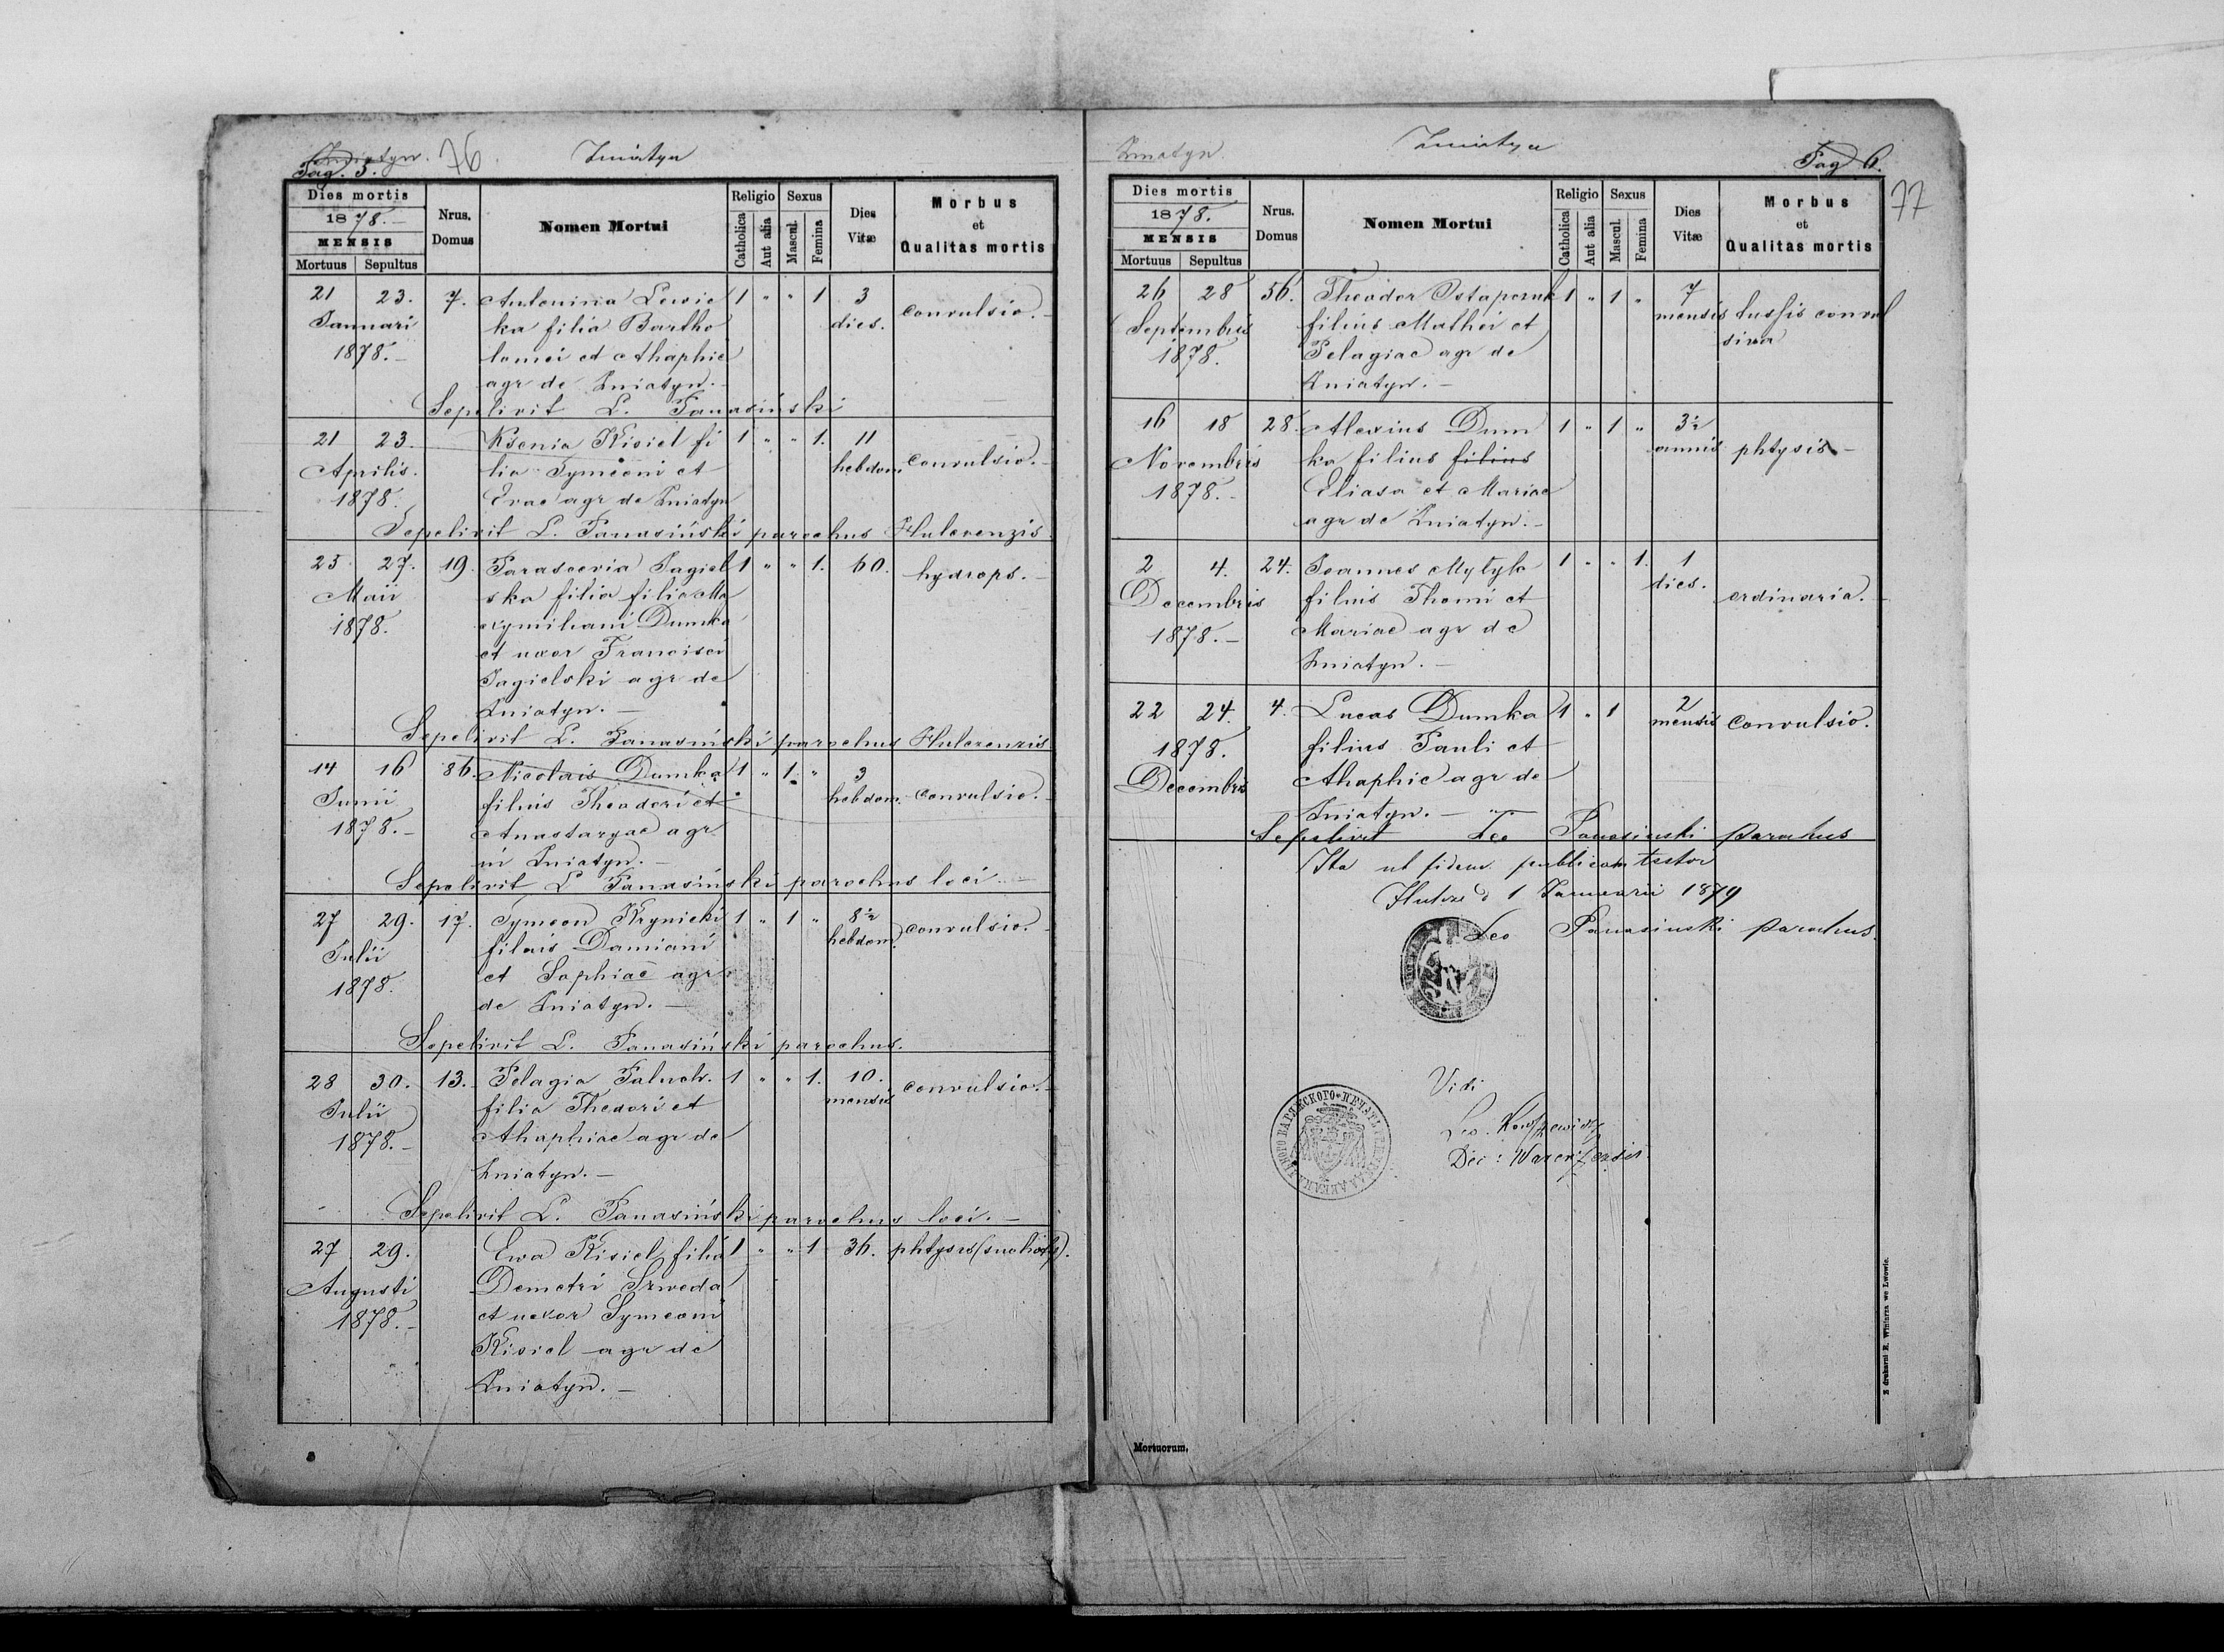 Żniatyn. 76. Żniatyn
Pag. 5.
Dies mortis
1878.
MENSIS
Mortuus Sepultus
Nrus. Domus
Nomen Mortui
Religio Sexus
Catholica Aut alia Mascul. Femina
Dies Vitæ
Morbus et Qualitas mortis
21 23. 7. Antonina Lewic 1 " " 1 3 convulsio.
Januari ka filia Bartho dies.
1878. lomei et Ahaphie
agr de Żniatyn.
Sepelivit L. Panasiński
21 23. Ksenia Kisiel fi 1 " " 1. 11
Aprilis. lia Symeoni et hebdom. convulsio.
1878. Evae agr de Żniatyn
Sepelivit L. Panasiński parochus Hulczenzis
25 27. 19. Parascevia Jagiel 1 " " 1. 60. hydrops.
Maii ska filia filia Ma
1878. xymiliani Dumka
et uxor Francisci
Jagielski agr de
Żniatyn.
Sepelivit L. Panasiński parochus Hulczenzis
14 16 86. Nicolais Dumka 1 " 1. " 3
Junii filius Theodori et hebdom. convulsio.
1878. Anastazyae agr
in Żniatyn.
Sepelivit L Panasiński parochus loci.
27 29. 17. Symeon Krynicki 1 " 1 " 8½ convulsio.
Julii filius Damiani hebdom.
1878. et Sophiae agr
de Żniatyn.
Sepelivit L. Panasiński parochus.
28 30. 13. Pelagia Paluch. 1 " " 1. 10. convulsio.
Julii filia Thedori et mensis
1878. Ahaphiae agr de
Żniatyn.
Sepelivit L. Panasiński parochus loci.
27 29. Ewa Kisiel filia 1 " " 1 36. phtysis (suchoty).
Augusti Demetri Szweda
1878. et uexor Symeoni
Kisiel agr de
Żniatyn.
Żniatyn. Żniatyn Pag 6.
77
Dies mortis
1878.
MENSIS
Mortuus Sepultus
Nrus. Domus
Nomen Mortui
Religio Sexus
Catholica Aut alia Mascul. Femina
Dies Vitæ
Morbus et Qualitas mortis
26 28 56. Theodor Ostapczuk 1 " 1 " 7
Septembris filius Mathei et mensis tussis convul
1878. Pelagiae agr de siva
Żniatyn.
16 18 28. Alexius Dum 1 " 1 " 3½
Novembris ka filius filius annis phtysis
1878. Eliasa et Mariae
agr de Żniatyn.
2 4. 24. Joannes Mytyk 1 " " 1. 1
Decembris filius Thomi et dies. ordinaria.
1878. Mariae agr de
Żniatyn.
22 24. 4. Lucas Dumka 1 " 1 2
1878. filius Pauli et mensis convulsio.
Decembris Ahaphie agr de
Żniatyn.
Sepelivit Leo Panasinski parochus
Ita ut fidem publicam testor
Hulcze d 1 Januarii 1879
Leo Panasinski parochus.
Vidi
Z drukarni E. Winiarza we Lwowie.
Mortuorum.